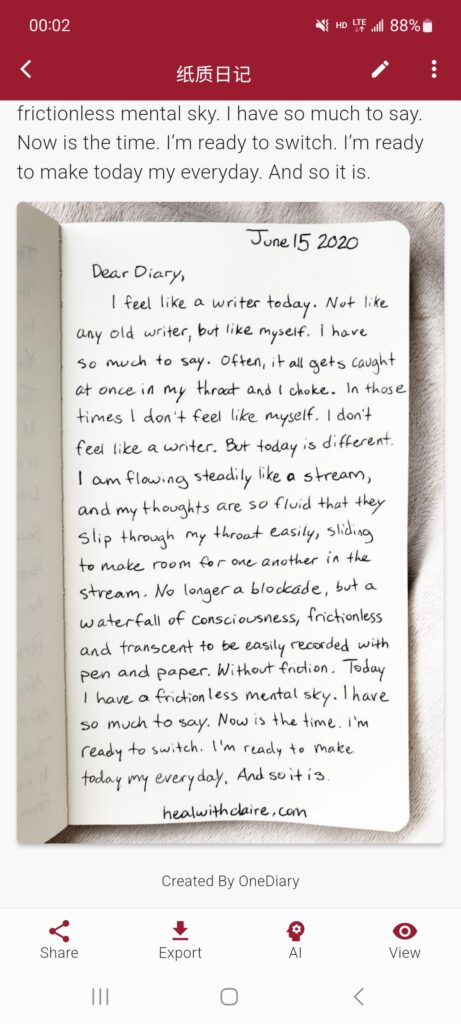 00:02
HD LTE 88%
纸质日记
frictionless mental sky. I have so much to say.
Now is the time. I’m ready to switch. I’m ready
to make today my everyday. And so it is.
June 15 2020
Dear Diary,
I feel like a writer today. Not like
any old writer, but like myself. I have
so much to say. Often, it all gets caught
at once in my throat and I choke. In those
times I don't feel like myself. I don't
feel like a writer. But today is different.
I am flowing steadily like a stream,
and my thoughts are so fluid that they
slip through my throat easily, sliding
to make room for one another in the
stream. No longer a blockade, but a
waterfall of consciousness, frictionless
and transcent to be easily recorded with
pen and paper. Without friction. Today
I have a frictionless mental sky. I have
so much to say. Now is the time. I'm
ready to switch. I'm ready to make
today my everyday. And so it is.
healwithclaire.com
Created By OneDiary
Share Export AI View